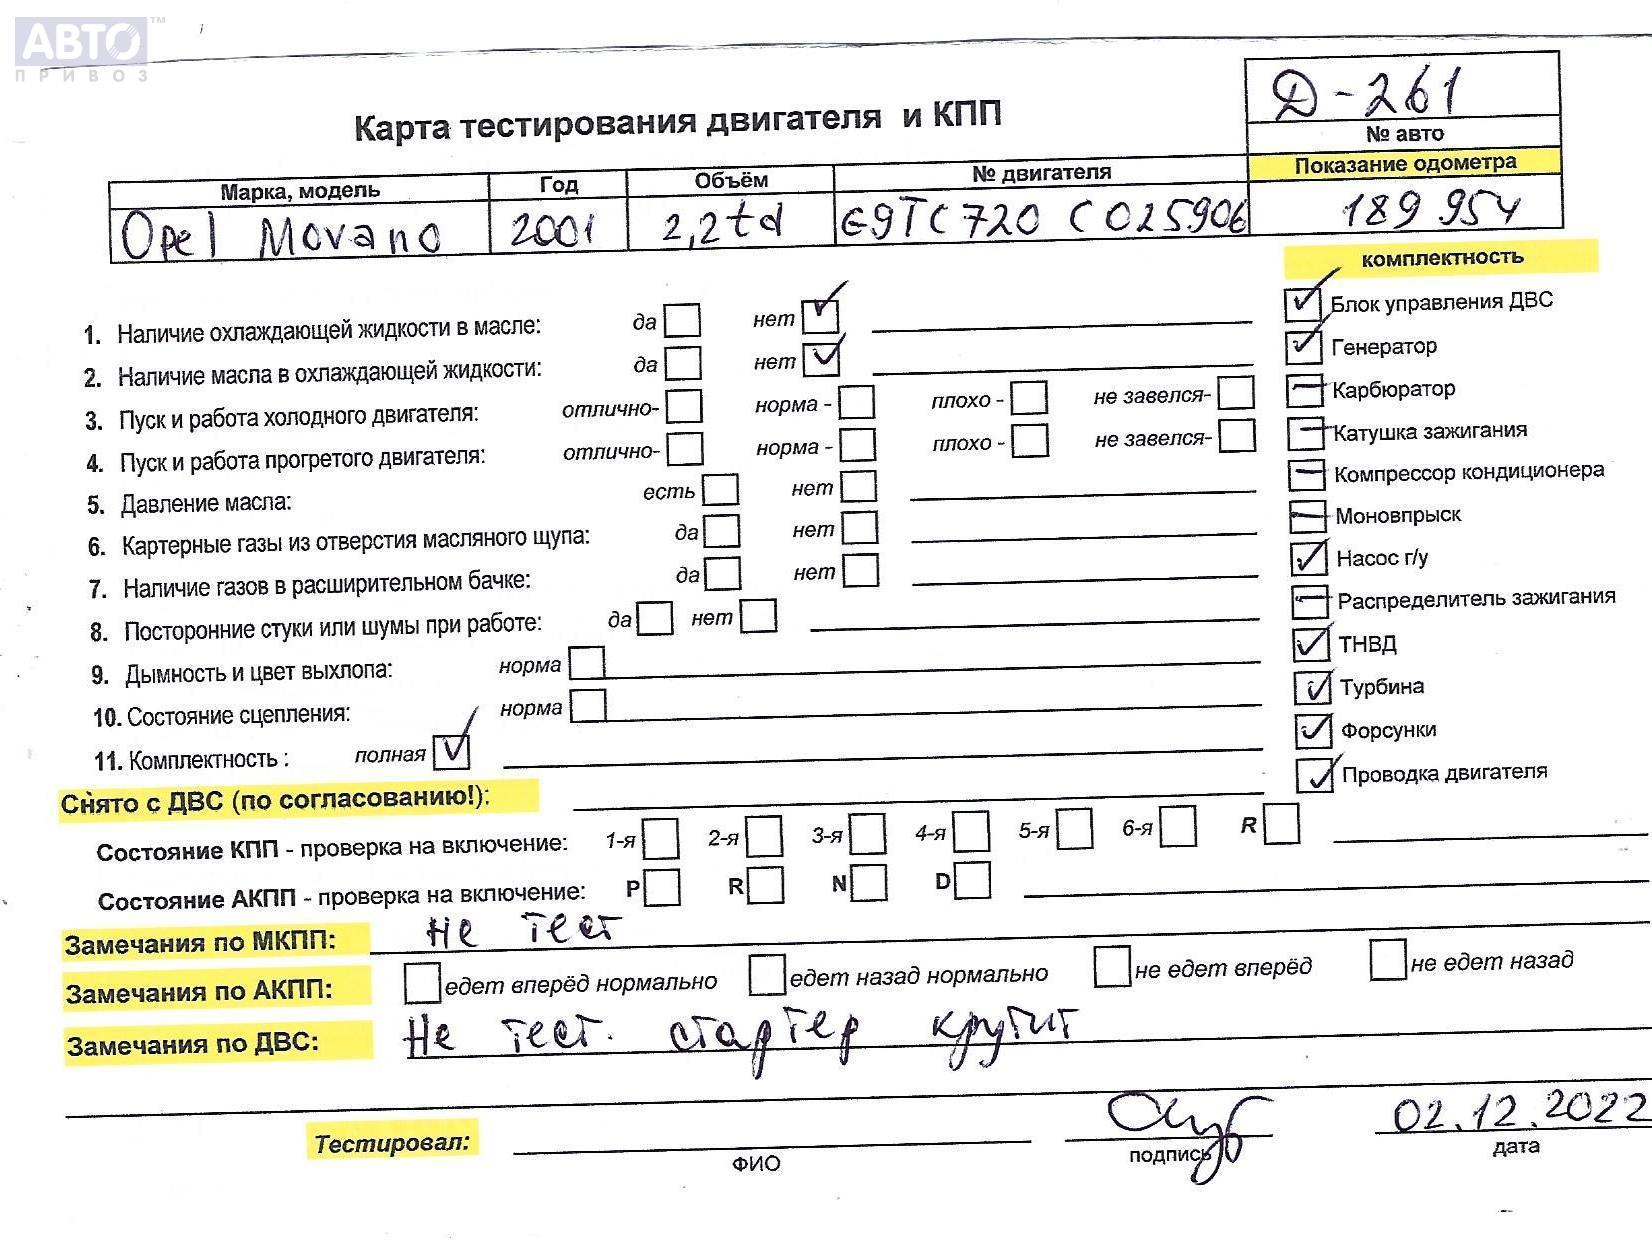 АВТО™
ПРИВОЗ
Д-261
Карта тестирования двигателя и КПП
№ авто
Марка, модель Год Объём № двигателя Показание одометра
Opel Movano 2001 2,2td G9TC720 C025906 189 954
комплектность
1. Наличие охлаждающей жидкости в масле: да нет ✓
✓ Блок управления ДВС
2. Наличие масла в охлаждающей жидкости: да нет ✓
✓ Генератор
3. Пуск и работа холодного двигателя: отлично- норма - плохо - не завелся-
— Карбюратор
4. Пуск и работа прогретого двигателя: отлично- норма - плохо - не завелся-
— Катушка зажигания
5. Давление масла: есть нет
— Компрессор кондиционера
6. Картерные газы из отверстия масляного щупа: да нет
— Моновпрыск
7. Наличие газов в расширительном бачке: да нет
✓ Насос г/у
8. Посторонние стуки или шумы при работе: да нет
— Распределитель зажигания
9. Дымность и цвет выхлопа: норма
✓ ТНВД
10. Состояние сцепления: норма
✓ Турбина
11. Комплектность : полная ✓
✓ Форсунки
✓ Проводка двигателя
Снято с ДВС (по согласованию!):
Состояние КПП - проверка на включение: 1-я 2-я 3-я 4-я 5-я 6-я R
Состояние АКПП - проверка на включение: P R N D
Замечания по МКПП: Не тест
Замечания по АКПП: едет вперёд нормально едет назад нормально не едет вперёд не едет назад
Замечания по ДВС: Не тест. стартер крутит
Тестировал: 02.12.2022
ФИО подпись дата